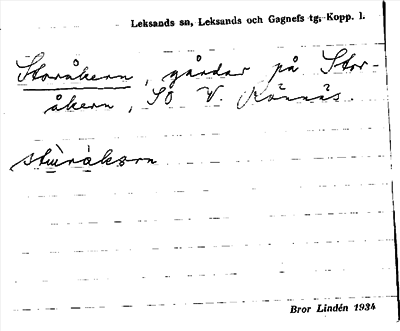 Leksands sn, Leksands och Gagnefs tg, Kopp. l.
Storåkern, gårdar på Stor-
åkern, SO V. Rönnäs.
sturåkərn
Bror Lindén 1934